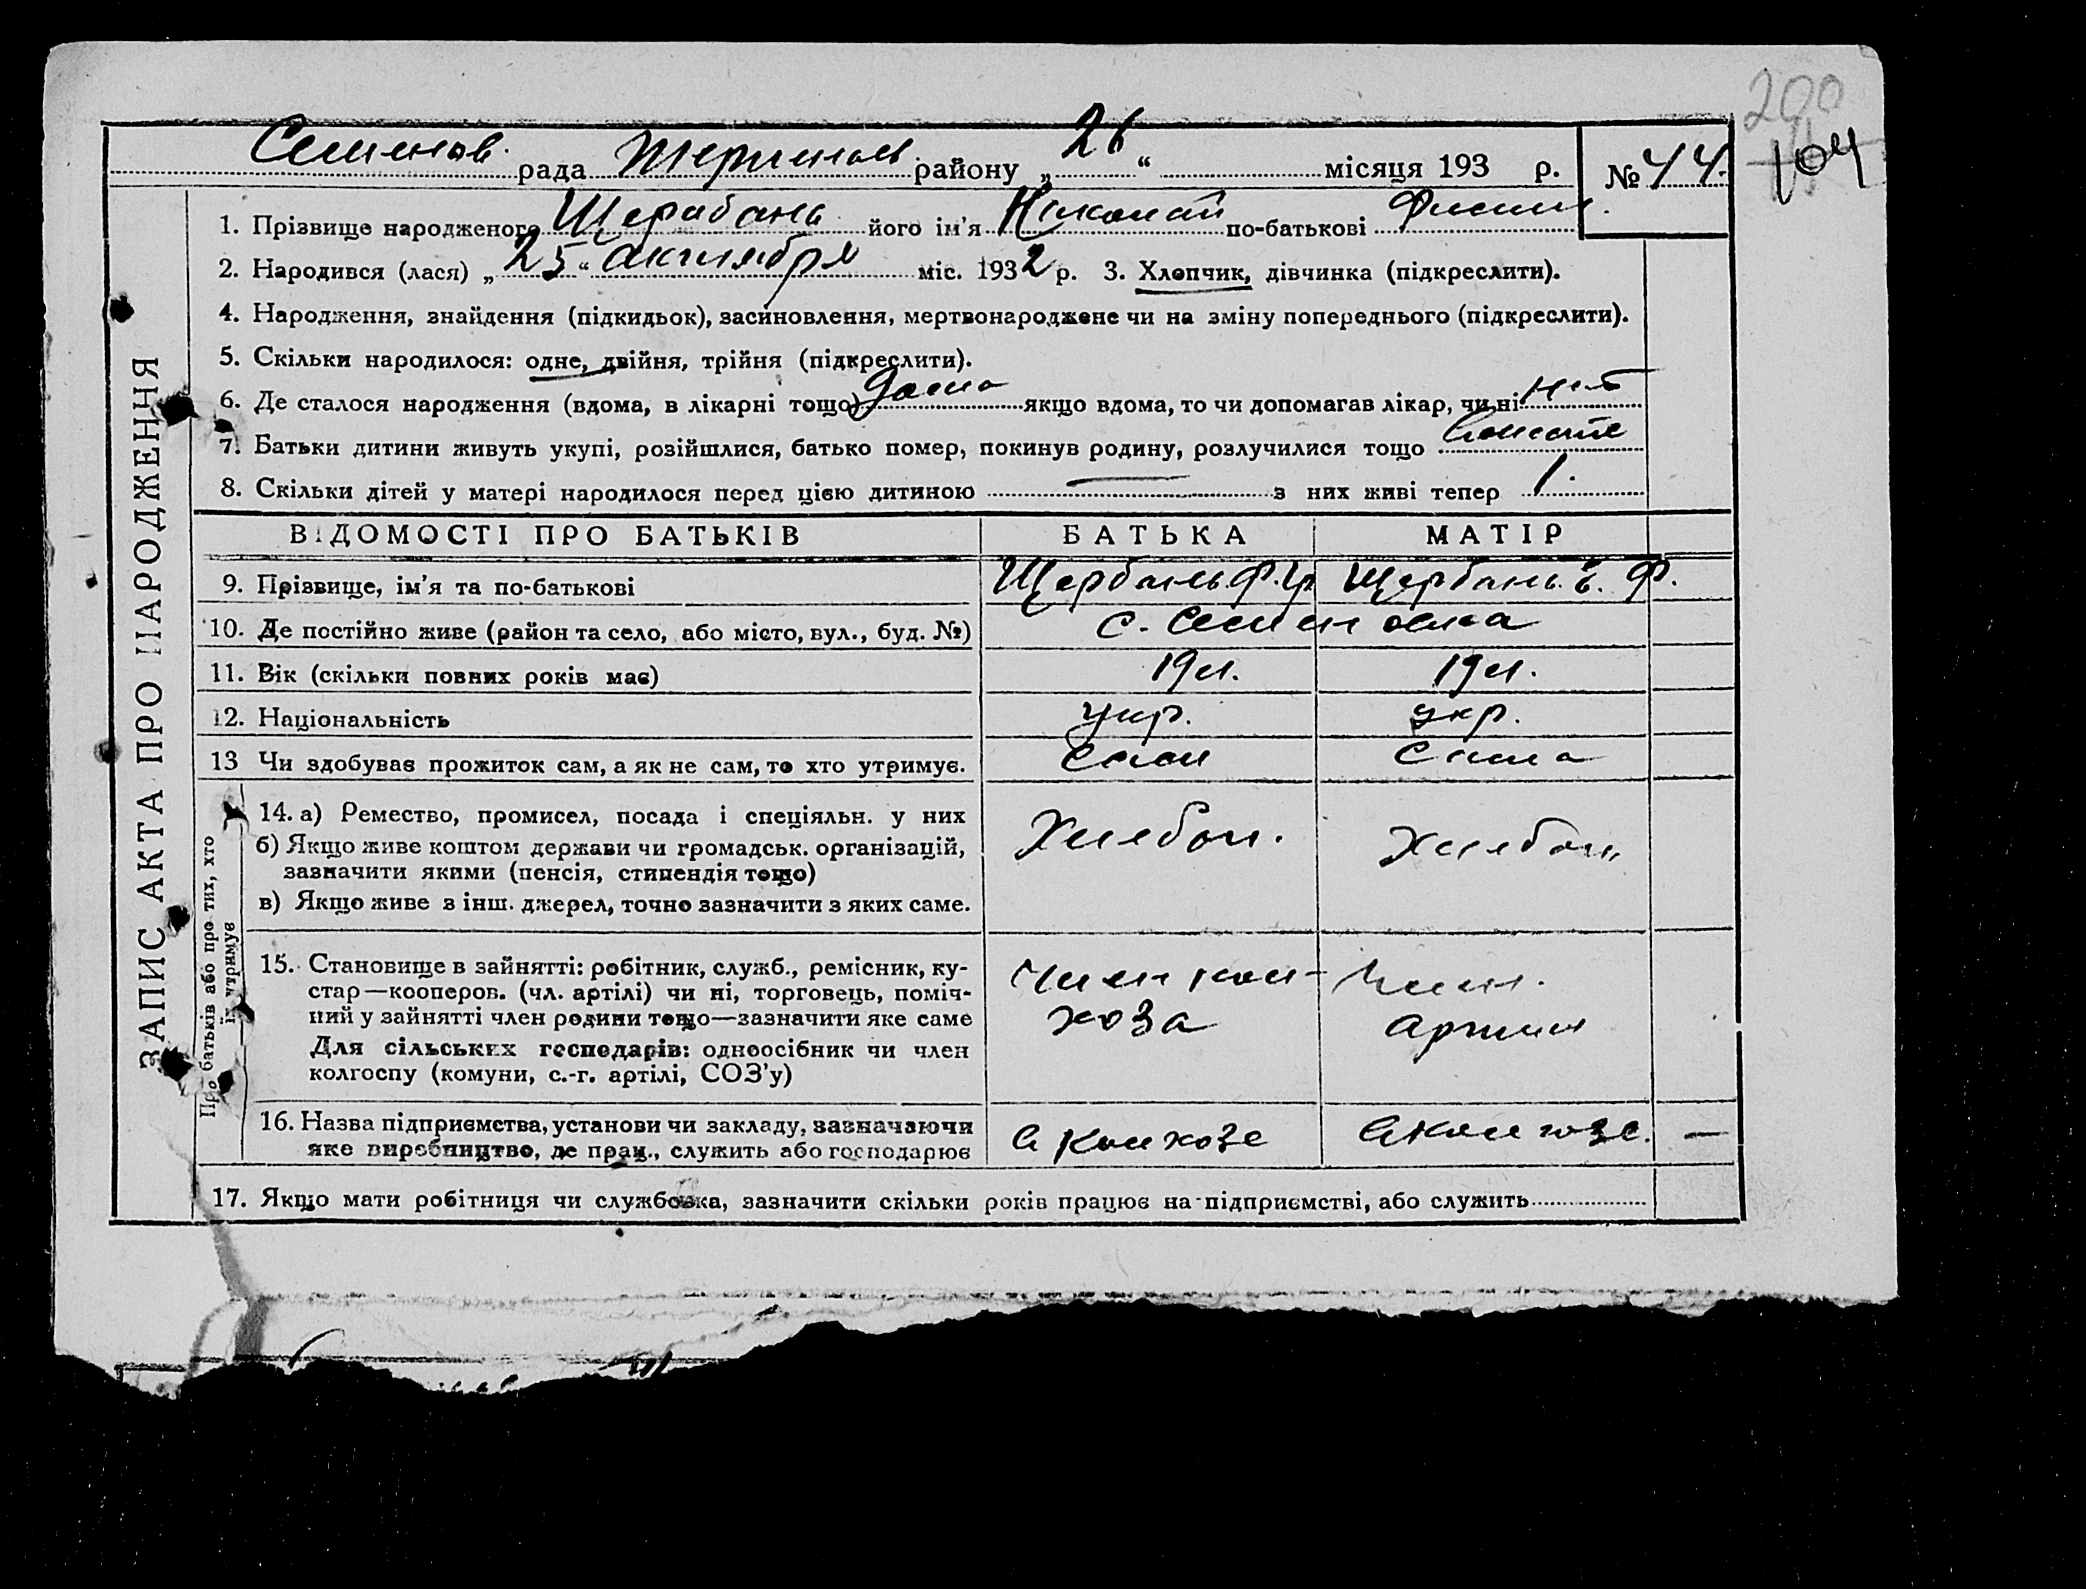 200
104
Семенов. рада района „26“ місяця 193 р. № 44.
1. Прізвище народженого Щербань його ім'я Николай по-батькові
2. Народився (лася) „25“ октября міс. 1932 р. 3. Хлопчик, дівчинка (підкреслити).
4. Народження, знайдення (підкидьок), засиновлення, мертвонароджене чи на зміну попереднього (підкреслити).
5. Скільки народилося: одне, двійня, трійня (підкреслити).
6. Де сталося народження (вдома, в лікарні тощо) дома якщо вдома, то чи допомагав лікар, чи ні нет
7. Батьки дитини живуть укупі, розійшлися, батько помер, покинув родину, розлучилися тощо
8. Скільки дітей у матері народилося перед цією дитиною — з них живі тепер 1.
ЗАПИС АКТА ПРО НАРОДЖЕННЯ
ВІДОМОСТІ ПРО БАТЬКІВ БАТЬКА МАТІР
9. Прізвище, ім'я та по-батькові Щербань Ф. Гр Щербань Е. Ф.
10. Де постійно живе (район та село, або місто, вул., буд. №) с. Семеновка
11. Вік (скільки повних років має) 19 л. 19 л.
12. Національність укр. укр.
13 Чи здобував прожиток сам, а як не сам, то хто утримує. сам сама
Про батьків або про тих, хто їх утримує
14. а) Ремество, промисел, посада і спеціяльн. у них Хлебоп. Хлебоп.
б) Якщо живе коштом держави чи громадськ. організацій,
зазначити якими (пенсія, стипендія тощо)
в) Якщо живе з інш. джерел, точно зазначити з яких саме.
15. Становище в зайнятті: робітник, служб., ремісник, ку- Член кол- Член.
стар—кооперов. (чл. артілі) чи ні, торговець, поміч- хоза артели
ний у зайнятті член родини тощо—зазначити яке саме
Для сільських господарів: одноосібник чи член
колгоспу (комуни, с.-г. артілі, СОЗ'у)
16. Назва підприємства, установи чи закладу, зазначаючи в колхозе в колхозе. —
яке виробництво, де прац., служить або господарює
17. Якщо мати робітниця чи службовка, зазначити скільки років працює на підприємстві, або служить